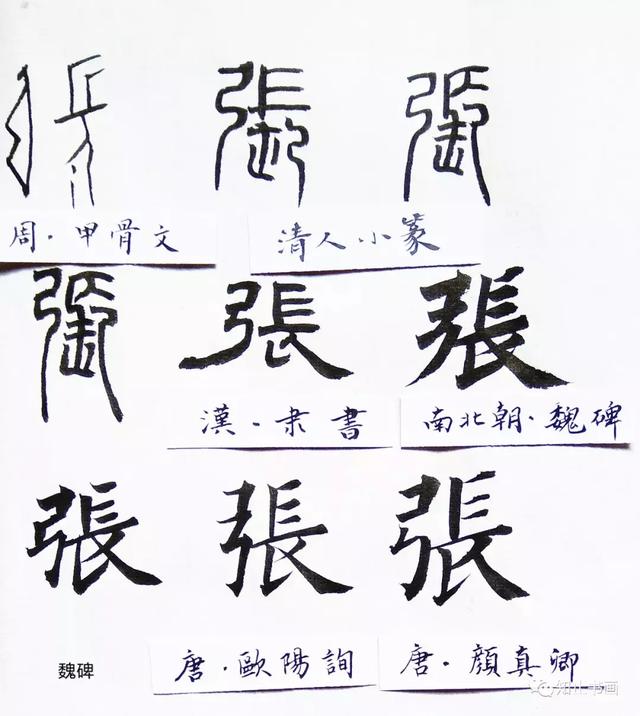 張 張 張
周·甲骨文
清人小篆
張 張 張
漢·隶書
南北朝·魏碑
張 張 張
魏碑
唐·歐陽詢
唐·顏真卿
知止书画